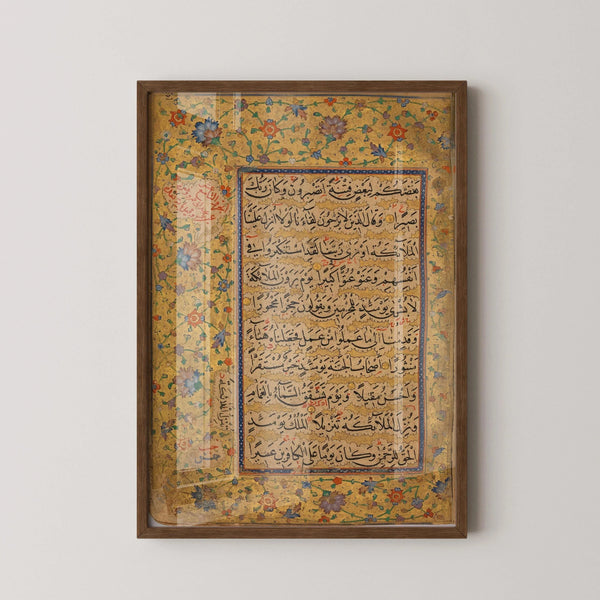 بعضكم لبعض فتنة أتصبرون وكان ربك
بصيرا وقال الذين لا يرجون لقاءنا لولا أنزل علينا
الملائكة أو نرى ربنا لقد استكبروا في
أنفسهم وعتوا عتوا كبيرا يوم يرون الملائكة
لا بشرى يومئذ للمجرمين ويقولون حجرا محجورا
وقدمنا إلى ما عملوا من عمل فجعلناه هباء
منثورا أصحاب الجنة يومئذ خير مستقرا
وأحسن مقيلا ويوم تشقق السماء بالغمام
ونزل الملائكة تنزيلا الملك يومئذ
الحق للرحمن وكان يوما على الكافرين عسيرا